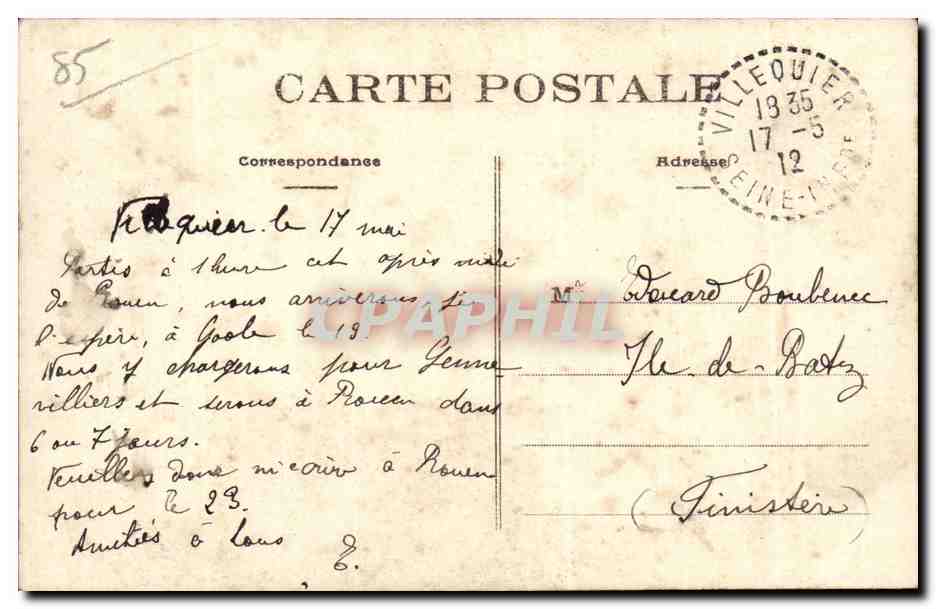 85
CARTE POSTALE
VILLEQUIER
18 35
17 - 5
12
SEINE-INFRE
Correspondance
Adresse
le 17 mai
Partis à 1 heure cet après midi
de Rouen, nous arriverons, je
l'espère, à Goole le 19.
Nous y chargerons pour Genne-
villiers et serons à Rouen dans
6 ou 7 jours.
Veuillez donc m'écrire à Rouen
pour le 23.
Amitiés à tous
E.
Mr Edouard Boubenec
Ile-de-Batz
(Finistère)
CPAPHIL